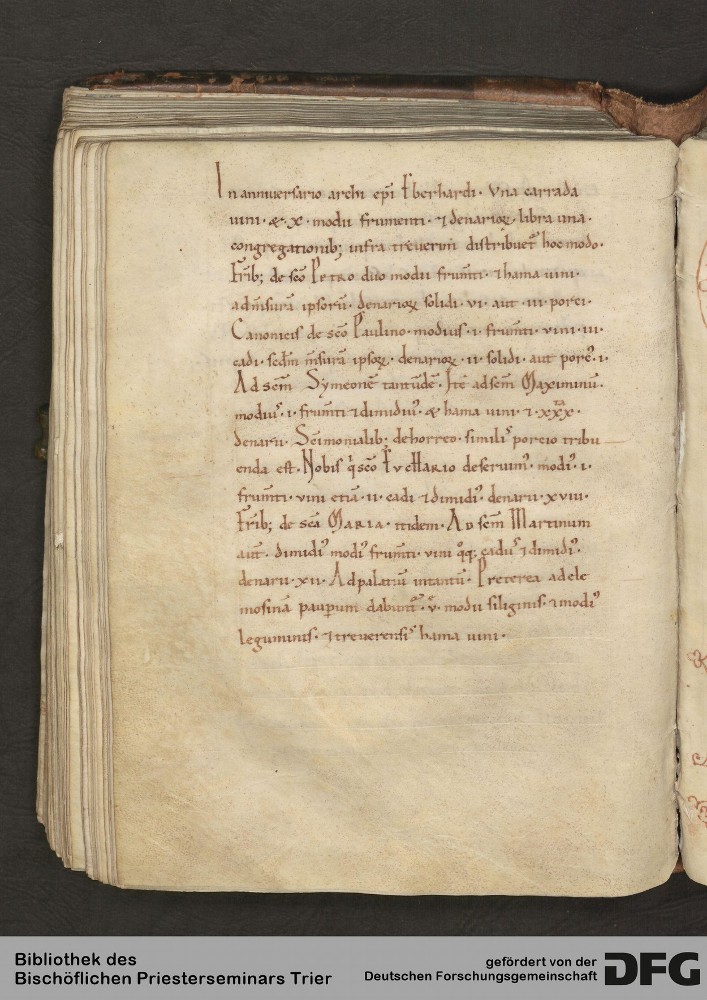 In anniuersario archi ep̄i Eberhardi· Vna carrada
uini· &·x· modii frumenti· ⁊ denarioꝝ· libra una·
congregationib; infra treuerim̄ distribuet᷑ hoc modo·
Fr̄ib; de sc̄o PETRO duo modii frum̄ti· ⁊ hama uini·
ad m̄surā ipsorū· denarioꝝ solidi· vi· aut· iii· porci·
Canonicis de sc̄o Paulino· modius· i· frum̄ti· vini· iii·
cadi· scd̄m m̄surā ipsoꝝ· denarioꝝ· ii· solidi· aut porc᷒· i·
Ad sc̄m Symeonē tantūdē· Itē ad sc̄m Maximinū·
modiu᷒· i· frum̄ti ⁊ dimidiū· & hama uini· ⁊· xxx·
denarii· Sc̄imonialib; de horreo· simili᷒ porcio tribu
enda est· Nobis q̇ sc̄o EVCHARIO deseruim᷒· modi᷒· i·
frum̄ti· vini etiā· ii· cadi ⁊ dimidi᷒· denarii· xviii·
Fr̄ib; de sc̄a MARIA· itidem· AD sc̄m Martinum
aut̄· dimidi᷒ modi᷒ frum̄ti· vini q̊q; cadu᷒ ⁊ dimidi᷒·
denarii· xii· Ad palatiū intantū· Preterea ad ele
mosinā paup̲um dabunt᷑· v̊· modii siliginis· ⁊ modi᷒
leguminis· ⁊ treuerensi᷒ hama uini·
Bibliothek des
Bischöflichen Priesterseminars Trier
gefördert von der
Deutschen Forschungsgemeinschaft
DFG